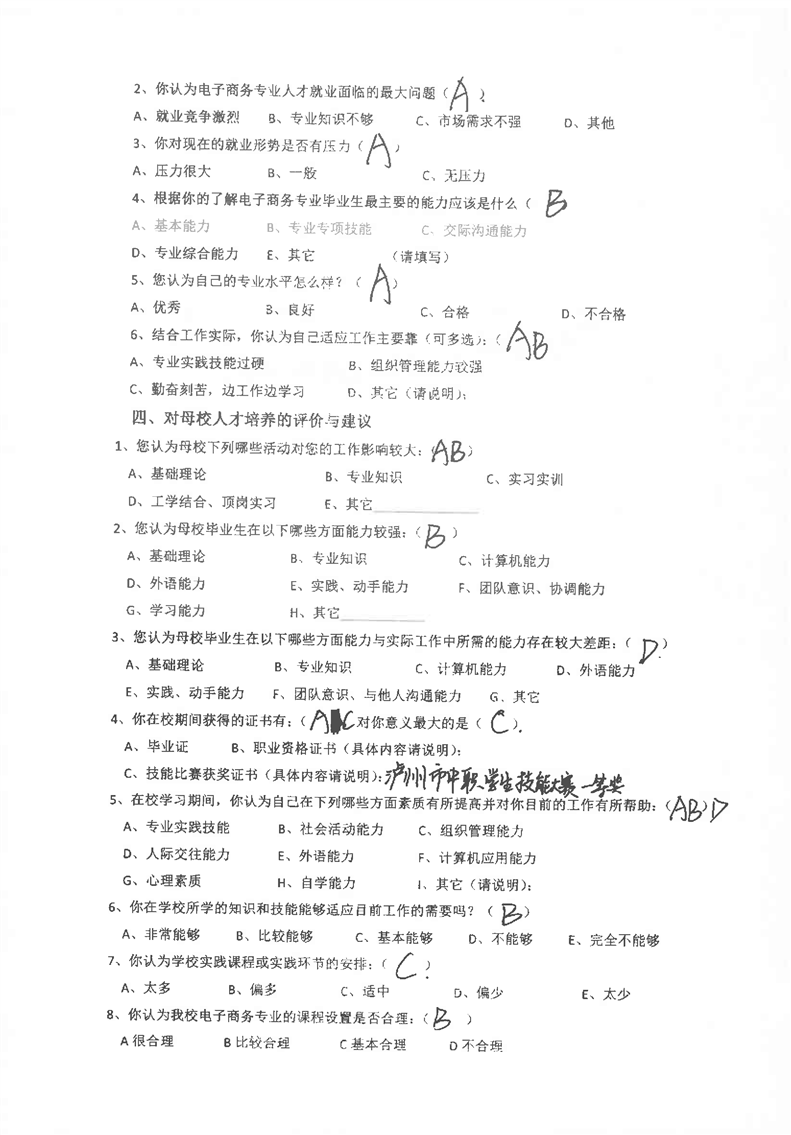 2、你认为电子商务专业人才就业面临的最大问题（A）
A、就业竞争激烈 B、专业知识不够 C、市场需求不强 D、其他
3、你对现在的就业形势是否有压力（A）
A、压力很大 B、一般 C、无压力
4、根据你的了解电子商务专业毕业生最主要的能力应该是什么（B
A、基本能力 B、专业专项技能 C、交际沟通能力
D、专业综合能力 E、其它 （请填写）
5、您认为自己的专业水平怎么样？（A）
A、优秀 B、良好 C、合格 D、不合格
6、结合工作实际，你认为自己适应工作主要靠（可多选）：（AB
A、专业实践技能过硬 B、组织管理能力较强
C、勤奋刻苦，边工作边学习 D、其它（请说明）：
四、对母校人才培养的评价与建议
1、您认为母校下列哪些活动对您的工作影响较大：（AB）
A、基础理论 B、专业知识 C、实习实训
D、工学结合、顶岗实习 E、其它
2、您认为母校毕业生在以下哪些方面能力较强：（B）
A、基础理论 B、专业知识 C、计算机能力
D、外语能力 E、实践、动手能力 F、团队意识、协调能力
G、学习能力 H、其它
3、您认为母校毕业生在以下哪些方面能力与实际工作中所需的能力存在较大差距：（D）
A、基础理论 B、专业知识 C、计算机能力 D、外语能力
E、实践、动手能力 F、团队意识、与他人沟通能力 G、其它
4、你在校期间获得的证书有：（A C 对你意义最大的是（C）.
A、毕业证 B、职业资格证书（具体内容请说明）：
C、技能比赛获奖证书（具体内容请说明）：泸州市中职学生技能大赛一等奖
5、在校学习期间，你认为自己在下列哪些方面素质有所提高并对你目前的工作有所帮助：（AB）D
A、专业实践技能 B、社会活动能力 C、组织管理能力
D、人际交往能力 E、外语能力 F、计算机应用能力
G、心理素质 H、自学能力 I、其它（请说明）：
6、你在学校所学的知识和技能能够适应目前工作的需要吗？（B）
A、非常能够 B、比较能够 C、基本能够 D、不能够 E、完全不能够
7、你认为学校实践课程或实践环节的安排：（C）
A、太多 B、偏多 C、适中 D、偏少 E、太少
8、你认为我校电子商务专业的课程设置是否合理：（B）
A 很合理 B 比较合理 C 基本合理 D 不合理